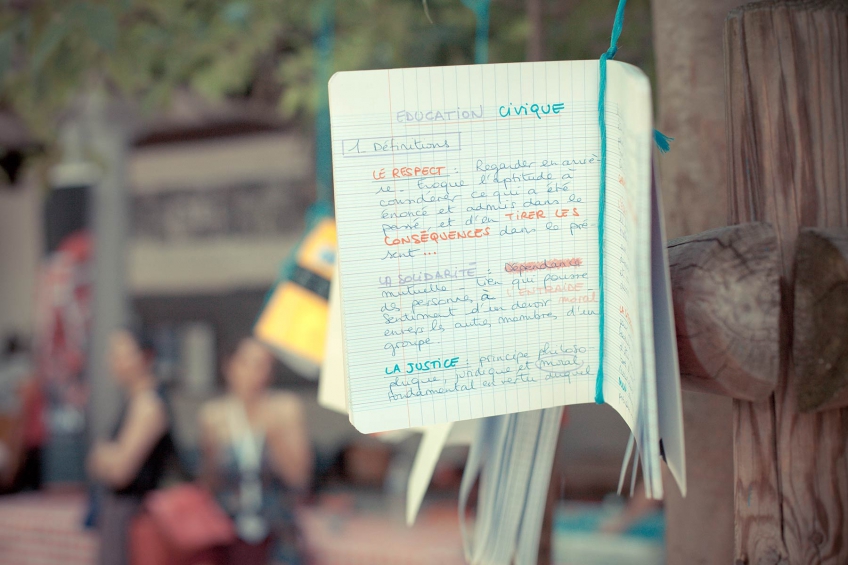 EDUCATION CIVIQUE
1. Définitions
LE RESPECT : Regarder en arriè-
re. Evoque l'aptitude à
considérer ce qui a été
énoncé et admis dans le
passé, et d'en TIRER LES
CONSÉQUENCES dans le pré-
sent ...
LA SOLIDARITÉ : Dépendance
mutuelle - Lien qui pousse
des personnes à L'ENTRAIDE -
Sentiment d'un devoir moral
envers les autres membres d'un
groupe.
LA JUSTICE : principe philoso-
phique, juridique et moral
fondamental en vertu duquel